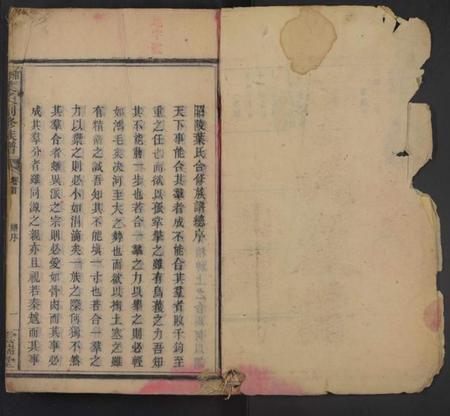 昭陵葉氏合修族譜總序
天下事能合其羣者成不能合其羣者敗千鈞至
重之任也而欲以孤掌擎之雖有烏獲之力吾知
其不能勝一步也若合一羣之力以舉之則必輕
如鴻毛矣決河至大之勢也而欲以掬土塞之雖
有精衛之誠吾知其不能填一寸也若合一羣之
力以築之則必小如涓滴矣一族之衆何獨不然
其羣合者雖異派之宗則必愛如骨肉而其事必
成其羣分者雖同源之親亦且視若秦越而其事
卷首
總序
一